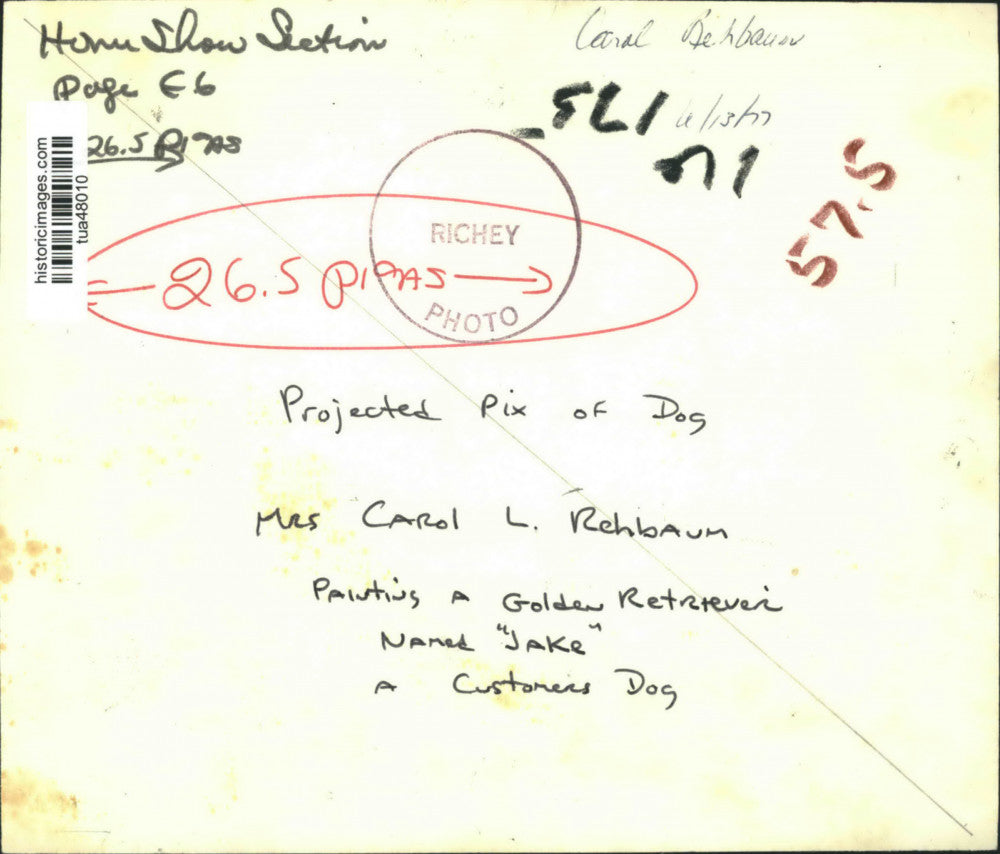 Home Show Section
Page E6
26.5 PICAS
Carol Rehbaum
521
6/13/77
historicimages.com
tua48010
57.5
RICHEY
PHOTO
26.5 PICAS
Projected Pix of Dog
Mrs Carol L. Rehbaum
Painting A Golden Retriever
Named "Jake"
A Customers Dog